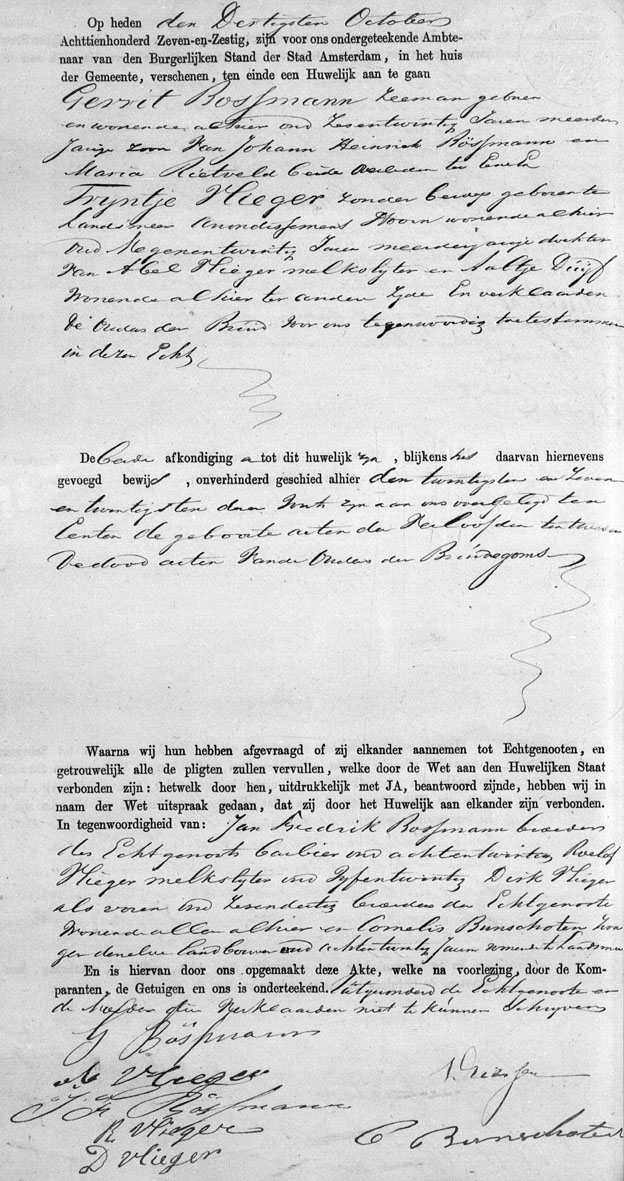 Op heden den Dertigsten October
Achttienhonderd Zeven-en-Zestig, zijn voor ons ondergeteekende Ambte-
naar van den Burgerlijken Stand der Stad Amsterdam, in het huis
der Gemeente, verschenen, ten einde een Huwelijk aan te gaan
Gerrit Bossmann Zeeman geboren
en wonende alhier oud Zesentwintig Jaren meerder
Jarige zoon van Johann Heinrich Bössmann en
Maria Rietveld beide overleden ter Eenre En
Trijntje Vlieger zonder beroep geboren te
Landsmeer Arrondissement Hoorn wonende alhier
oud Negenentwintig Jaren meerderjarige dochter
van Abel Vlieger melkslyter en Aaltje Duijf
wonende alhier ter andere zyde En verklaarden
de Ouders der Bruid voor ons tegenwoordig toetestemmen
in dezen Echt
De beide afkondiging a tot dit huwelijk zyn, blijkens het daarvan hiernevens
gevoegd bewijs, onverhinderd geschied alhier den twintigsten en Zeven
en twintigsten dezer Voorts zyn aan ons overgelegd ten
Eersten de geboorte acten der Verloofden ten tweeden
De dood acten van de Ouders des Bruidegoms
Waarna wij hun hebben afgevraagd of zij elkander aannemen tot Echtgenooten, en
getrouwelijk alle de pligten zullen vervullen, welke door de Wet aan den Huwelijken Staat
verbonden zijn: hetwelk door hen, uitdrukkelijk met JA, beantwoord zijnde, hebben wij in
naam der Wet uitspraak gedaan, dat zij door het Huwelijk aan elkander zijn verbonden.
In tegenwoordigheid van: Jan Fredrik Bossmann broeder
des Echtgenoots barbier oud achtentwintig Roelof
Vlieger melkslyter oud Vyfentwintig Dirk Vlieger
als voren oud Zesendertig broeders der Echtgenoote
wonende allen alhier en Cornelis Bunschoten Zwa
ger derzelve landbouwer oud achtentwintig Jaren wonende te Landsmeer
En is hiervan door ons opgemaakt deze Akte, welke na voorlezing, door de Kom-
paranten, de Getuigen en ons is onderteekend. uitgezonderd de Echtgenoote en
de Moeder die Verklaarden niet te kunnen Schryven
G Bössmann
A Vlieger
J F Bössmann
R Vlieger
D Vlieger
C Bunschoten